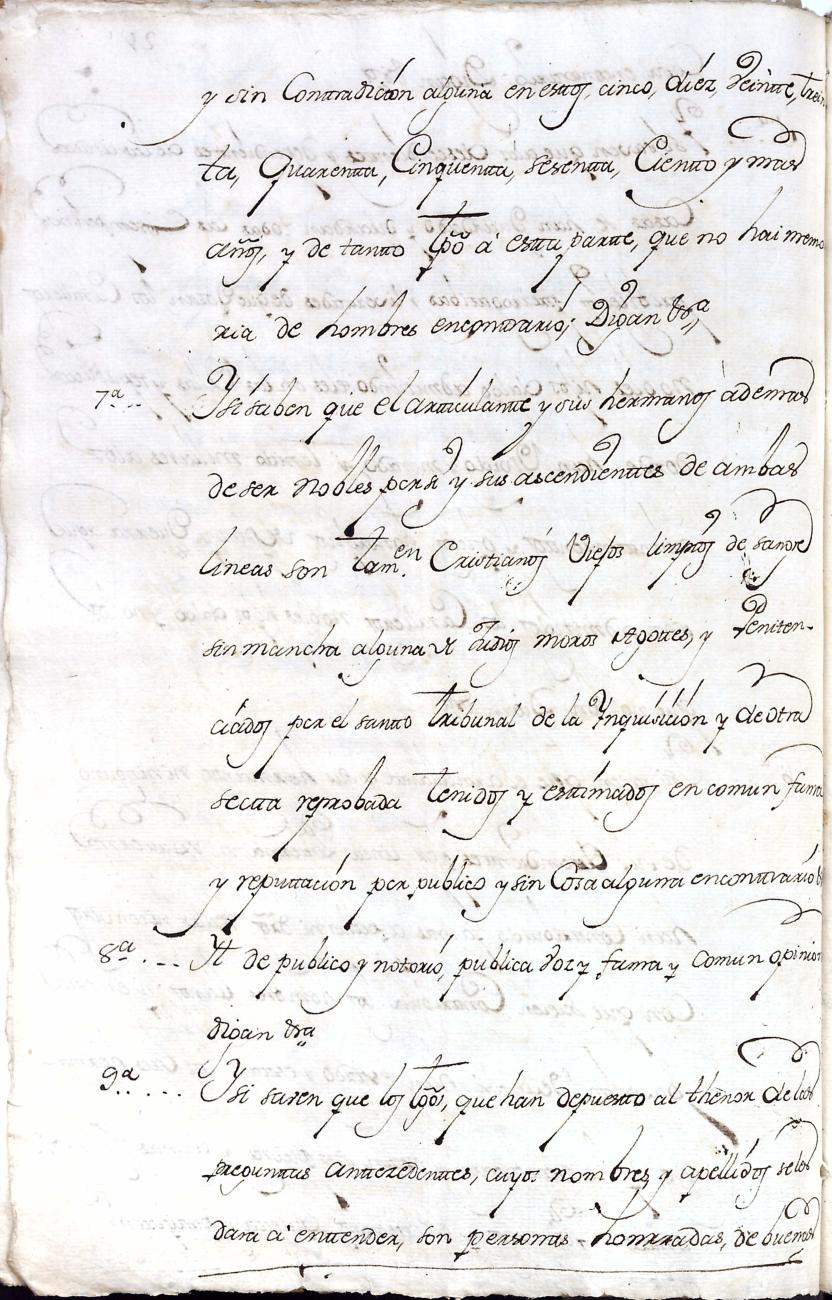 y sin Contradición alguna en estos, cinco, diéz, veinte, trein
ta, Quarenta, Cinquenta, sesenta, Ciento y mas
años, y de tanto tpõ a esta parte, que no hai memo
ria de hombres encontrario; Digan
7ª... Y si saben que el articulante y sus hermanos ademas
de ser Nobles por si y sus ascendientes de ambas
lineas son tamen Cristianos Viejos limpios de sangre
sin mancha alguna de Judios moros Agotes, y Peniten-
ciados por el santo tribunal de la Ynquisición y de otra
secta reprobada tenidos y estimados en comun fama
y reputación por publico y sin Cosa alguna encontrario
8ª... Yt de publico y notorio, publica voz y fama y comun opinion
digan
9ª... Y si saven que los tgõs, que han depuesto al thenor de las
preguntas antezedentes, cuyos nombres, y apellidos se les
dara a entender, son personas honrradas, de buenas